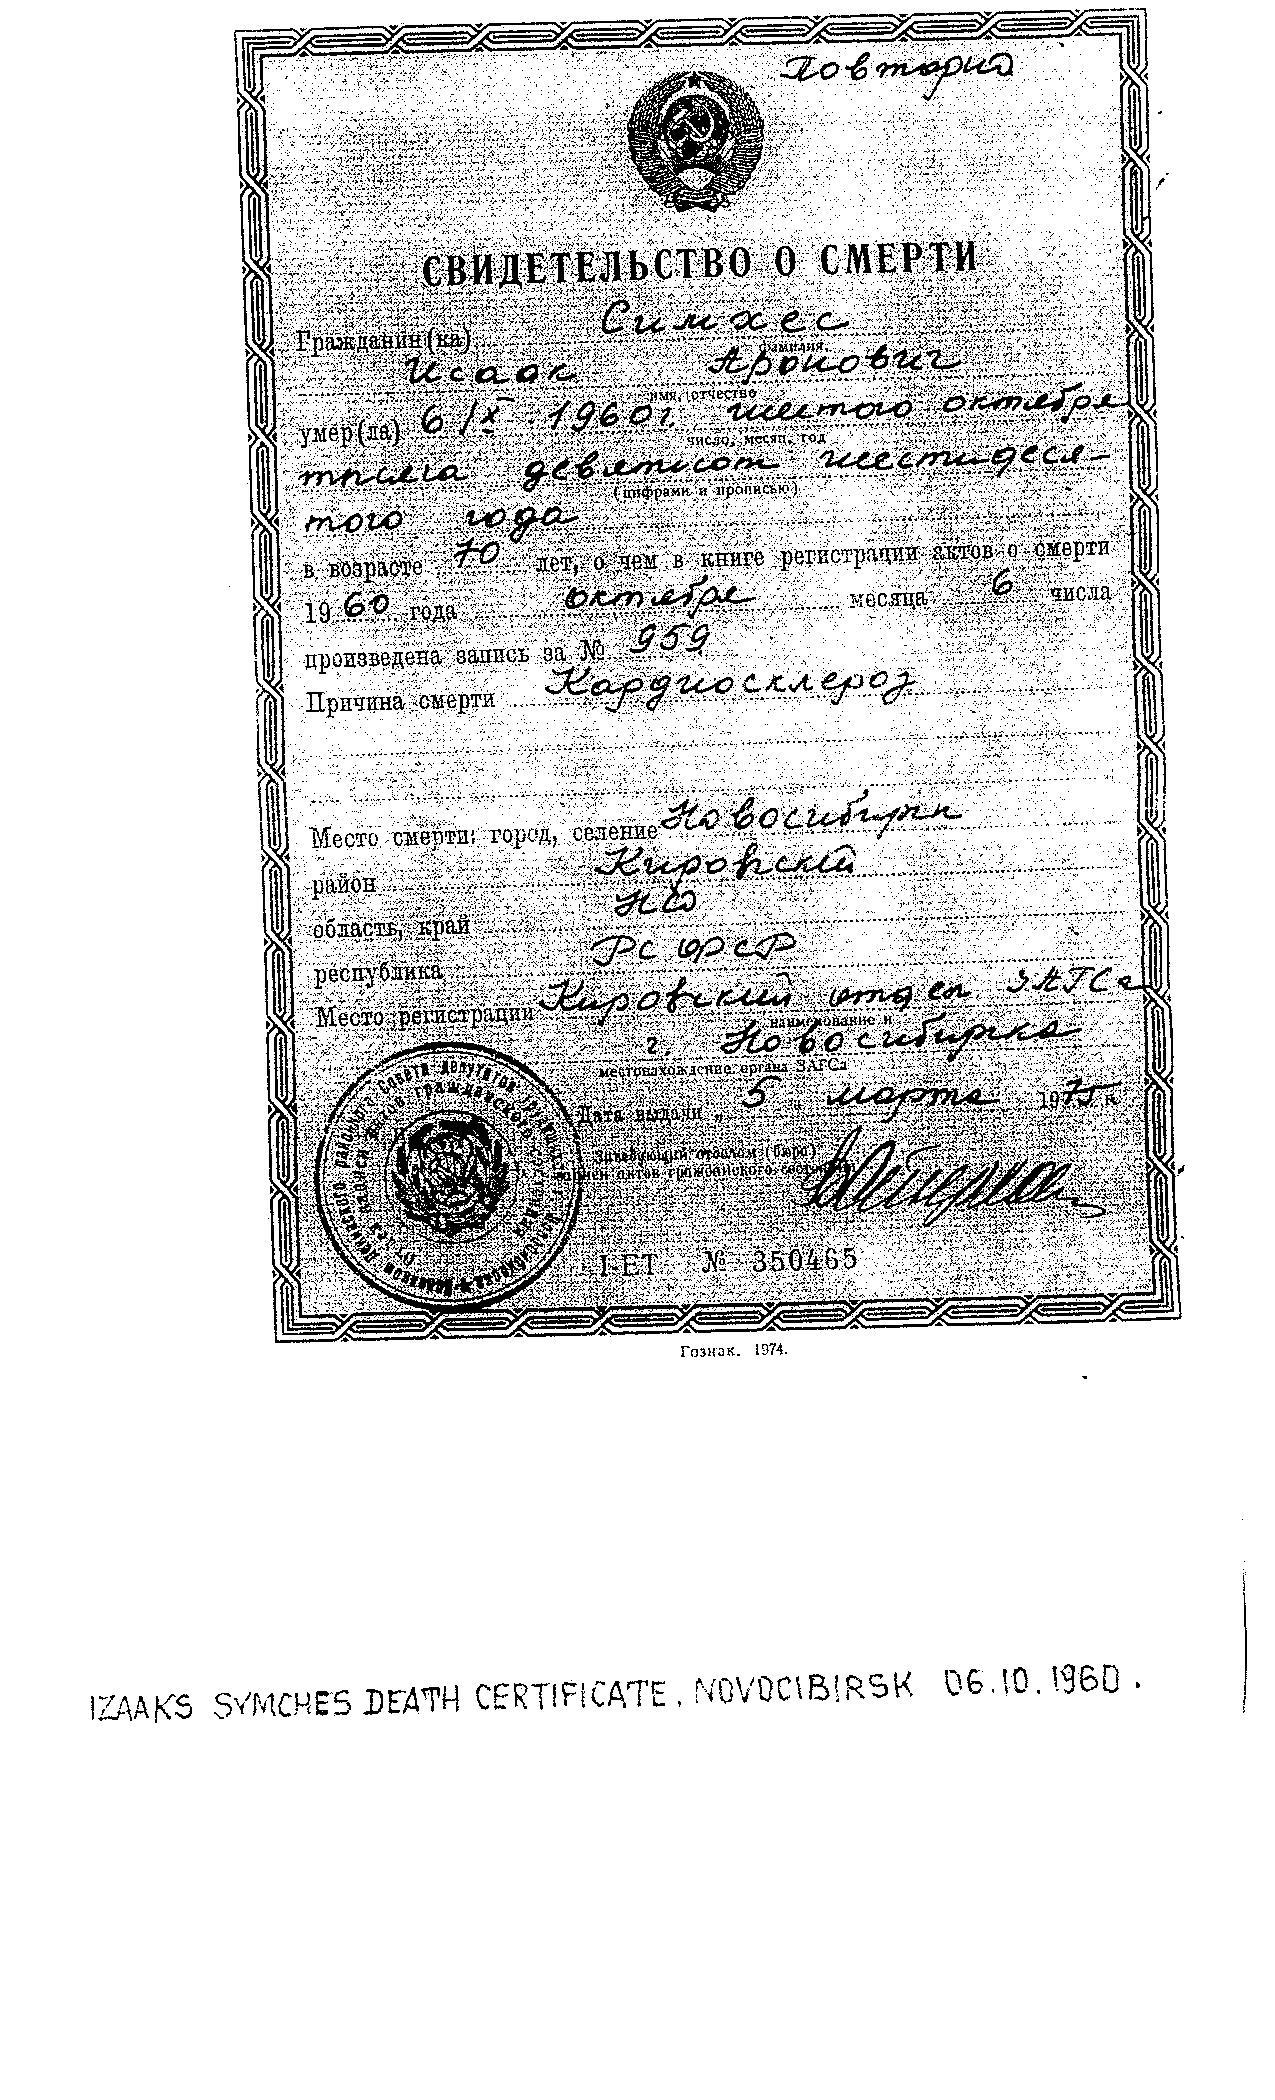 Повторно
СВИДЕТЕЛЬСТВО О СМЕРТИ
Гражданин(ка) Симхес
фамилия,
Исаак Аронович
имя, отчество
умер(ла) 6/X 1960 г. шестого октября
число, месяц, год
тысяча девятьсот шестидеся-
(цифрами и прописью)
того года
в возрасте 70 лет, о чем в книге регистрации актов о смерти
1960 года октября месяца 6 числа
произведена запись за № 959
Причина смерти Кардиосклероз
Место смерти: город, селение Новосибирск
район Кировский
область, край НСО
республика РСФСР
Место регистрации Кировский отдел ЗАГСа
наименование и
г. Новосибирска
местонахождение органа ЗАГСа
Дата выдачи „ 5 марта 1975 г.
Заведующий отделом (бюро)
записи актов гражданского состояния
районного Совета депутатов трудящихся
I-ЕТ № 350465
Гознак. 1974.
IZAAKS SYMCHES DEATH CERTIFICATE, NOVOCIBIRSK 06.10.1960.